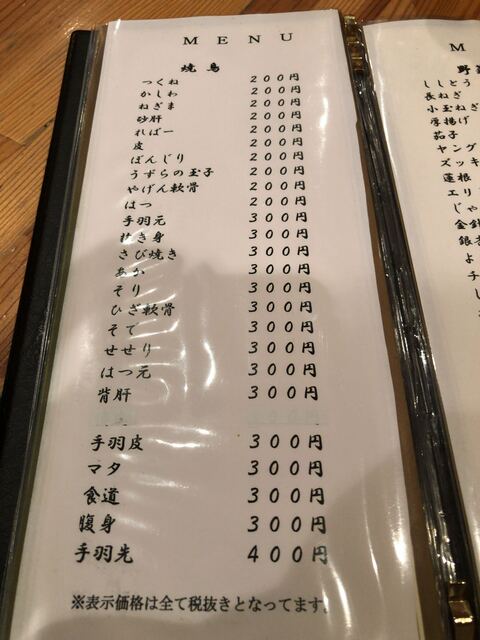 MENU
焼鳥
つくね 200円
かしわ 200円
ねぎま 200円
砂肝 200円
ればー 200円
皮 200円
ぼんじり 200円
うずらの玉子 200円
やげん軟骨 200円
はつ 200円
手羽元 300円
抜き身 300円
さび焼き 300円
あか 300円
そり 300円
ひざ軟骨 300円
そて 300円
せせり 300円
はつ元 300円
背肝 300円
手羽皮 300円
マタ 300円
食道 300円
腹身 300円
手羽先 400円
※表示価格は全て税抜きとなってます。
M
野
ししとう
長ねぎ
小玉ねぎ
厚揚げ
茄子
ヤング
ズッキ
蓮根
エリ
じゃ
金針
銀杏
よ
チ
し